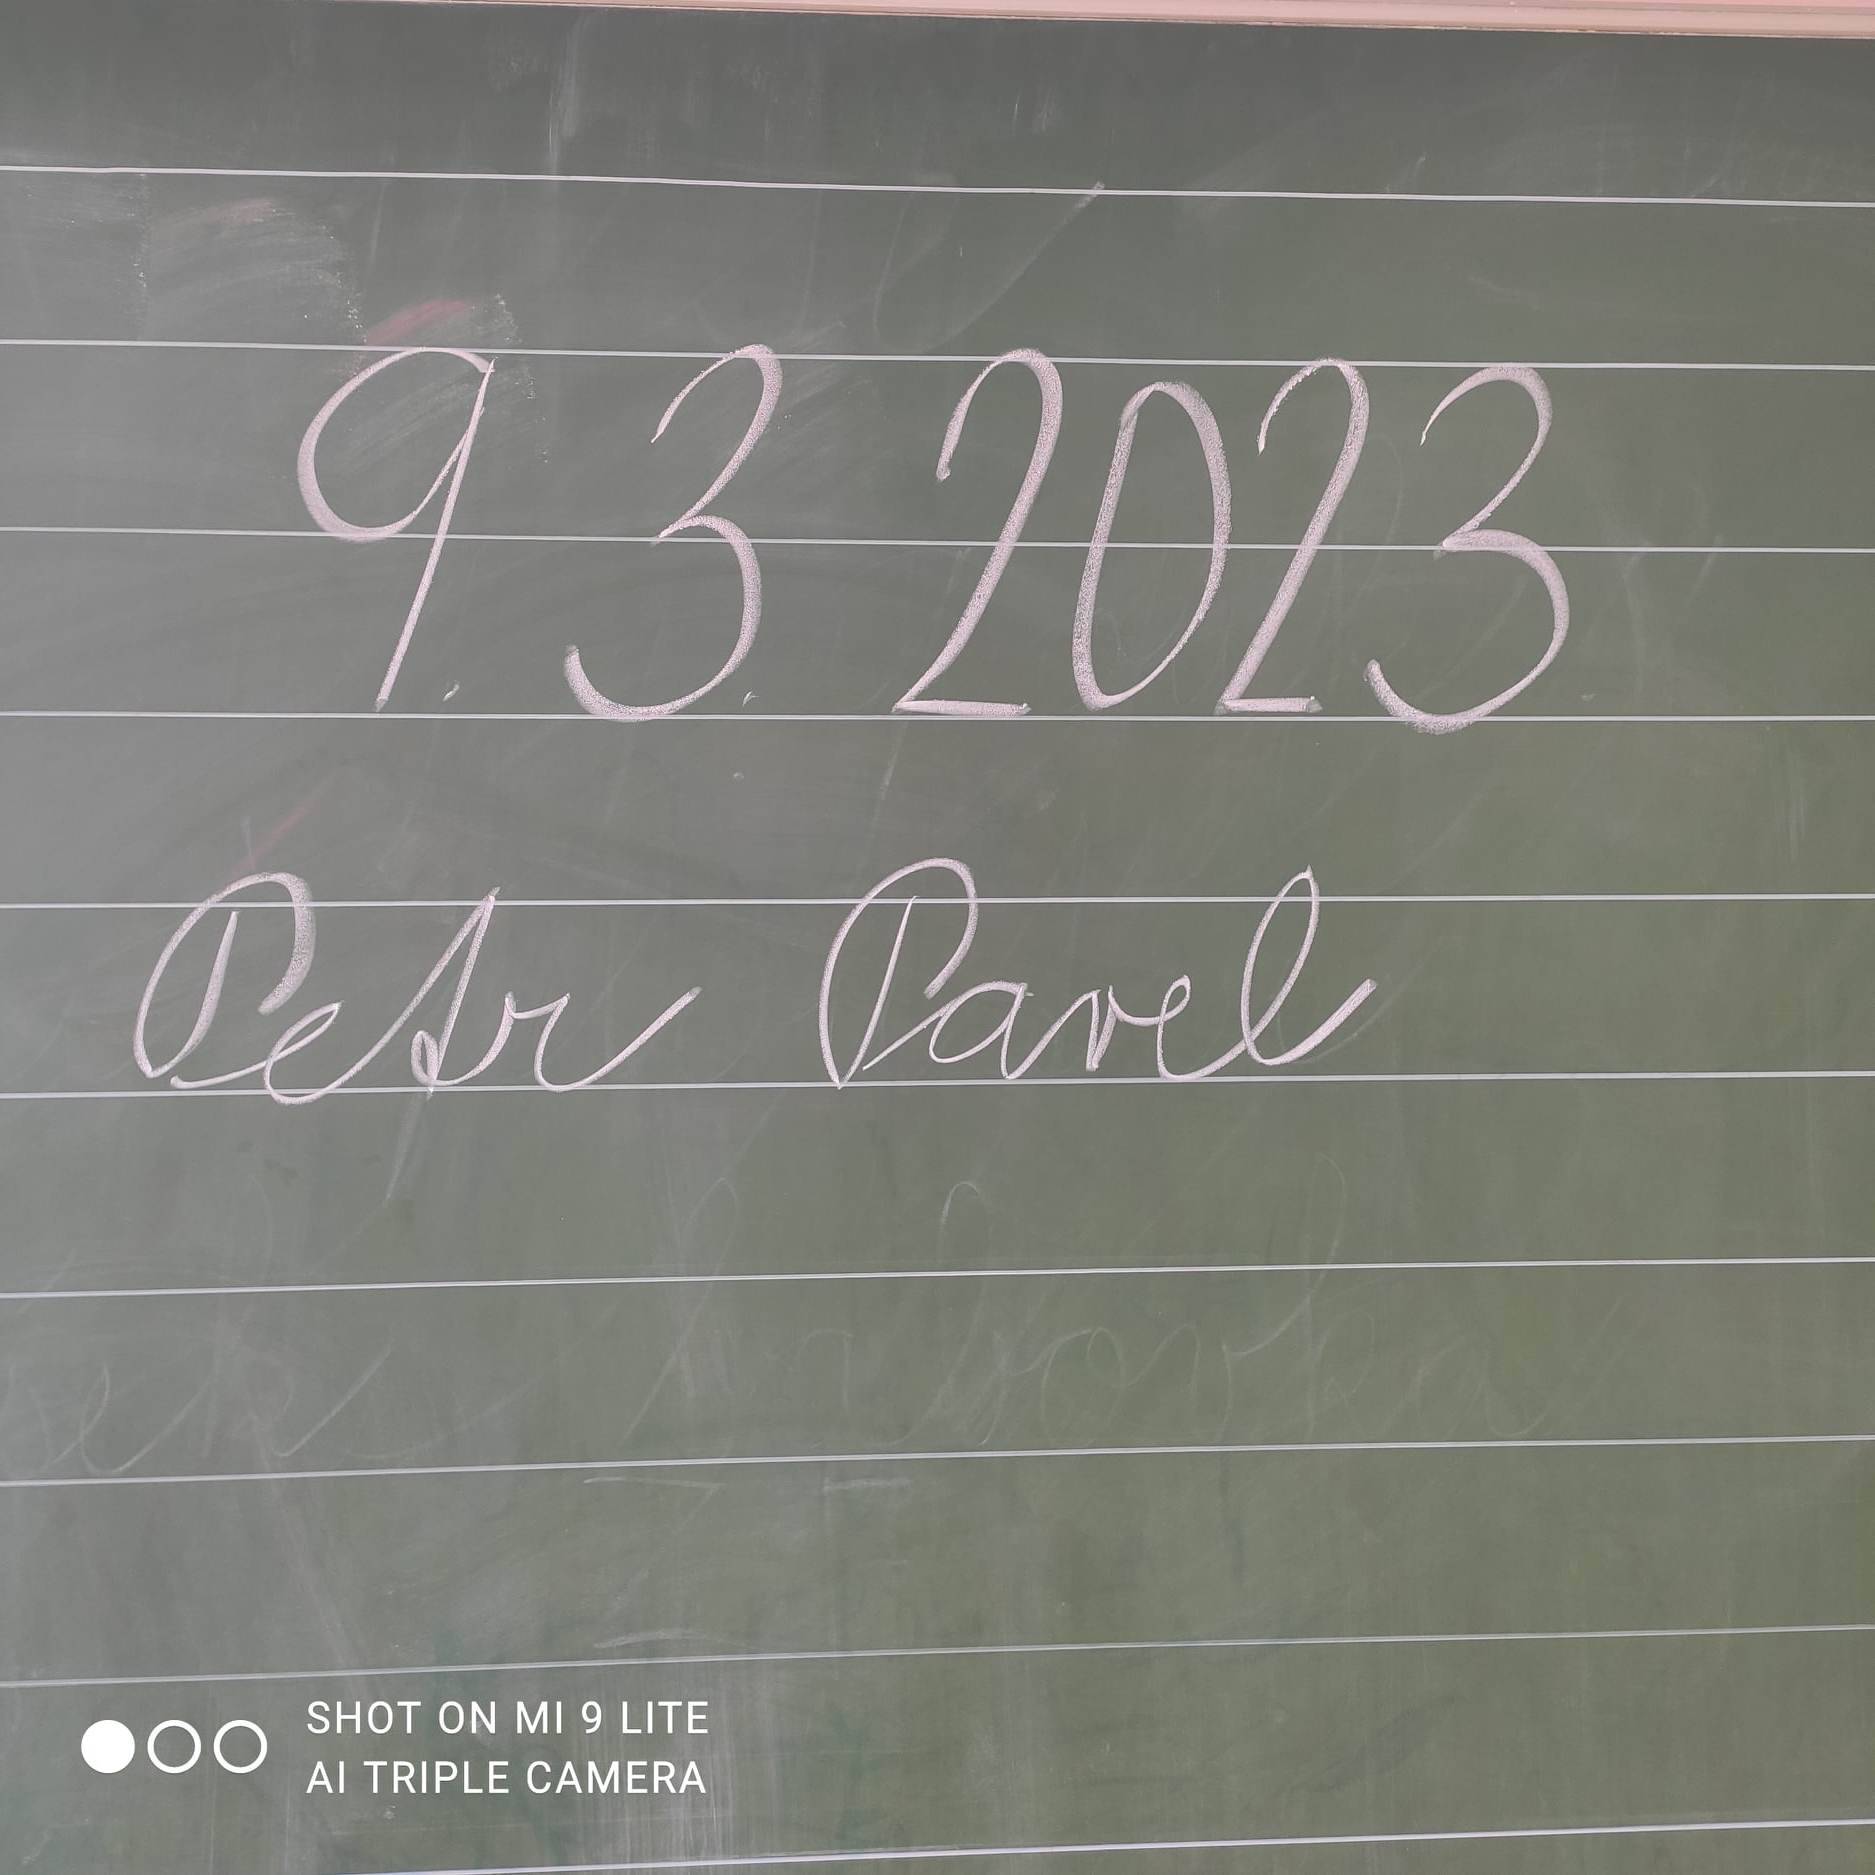 9. 3. 2023
Petr Pavel
SHOT ON MI 9 LITE
AI TRIPLE CAMERA